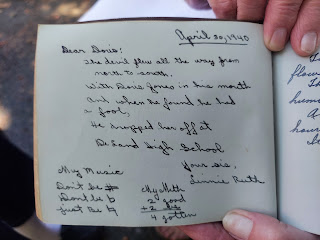 April 30, 1940
Dear Doris:
The devil flew all the way from
north to south.
With Doris Jones in his mouth
And when he found he had
a fool,
He dropped her off at
DeLand High School
Your sis,
Linnie Ruth
My Music
Don't be #
Don't be b
just Be ♮
My Math
2 good
+ 2 be
4 gotten
flow
Th
hum
A
hou